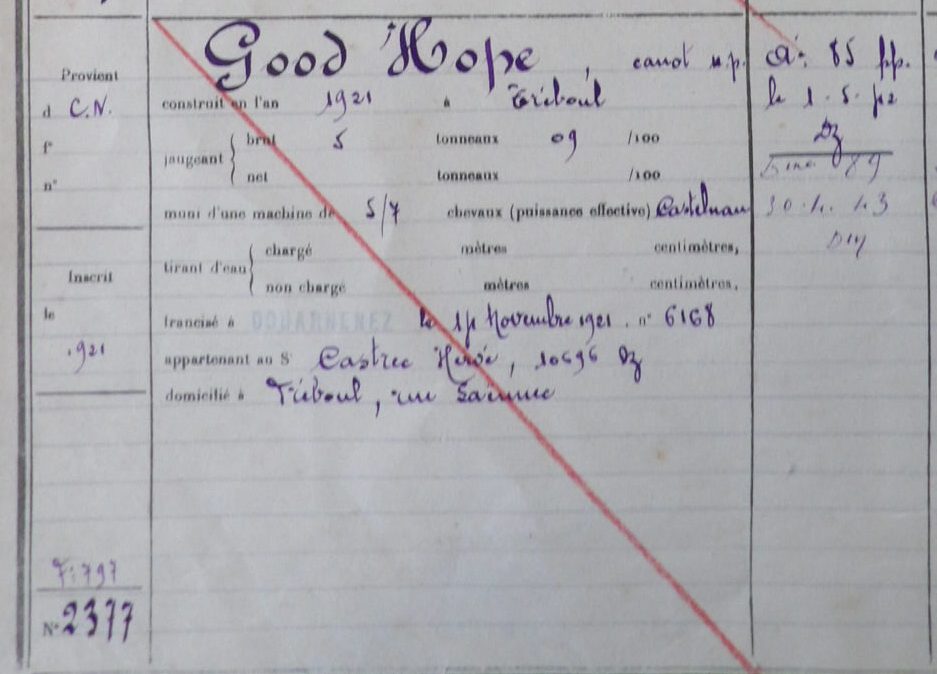 Provient
d C.N.
f°
n°
Inscrit
le
1921
F: 797
N° 2377
Good Hope, canot m.p.
construit en l'an 1921 à Tréboul
jaugeant { brut 5 tonneaux 09 /100
net tonneaux /100
muni d'une machine de 5/7 chevaux (puissance effective) Castelnau
tirant d'eau { chargé mètres centimètres,
non chargé mètres centimètres.
francisé à DOUARNENEZ le Novembre 1921. n° 6168
appartenant au S Castrec Hervé, 10696 Dz
domicilié à Tréboul, rue
a: 85 pp.
le 1.5.
Dz
89
43